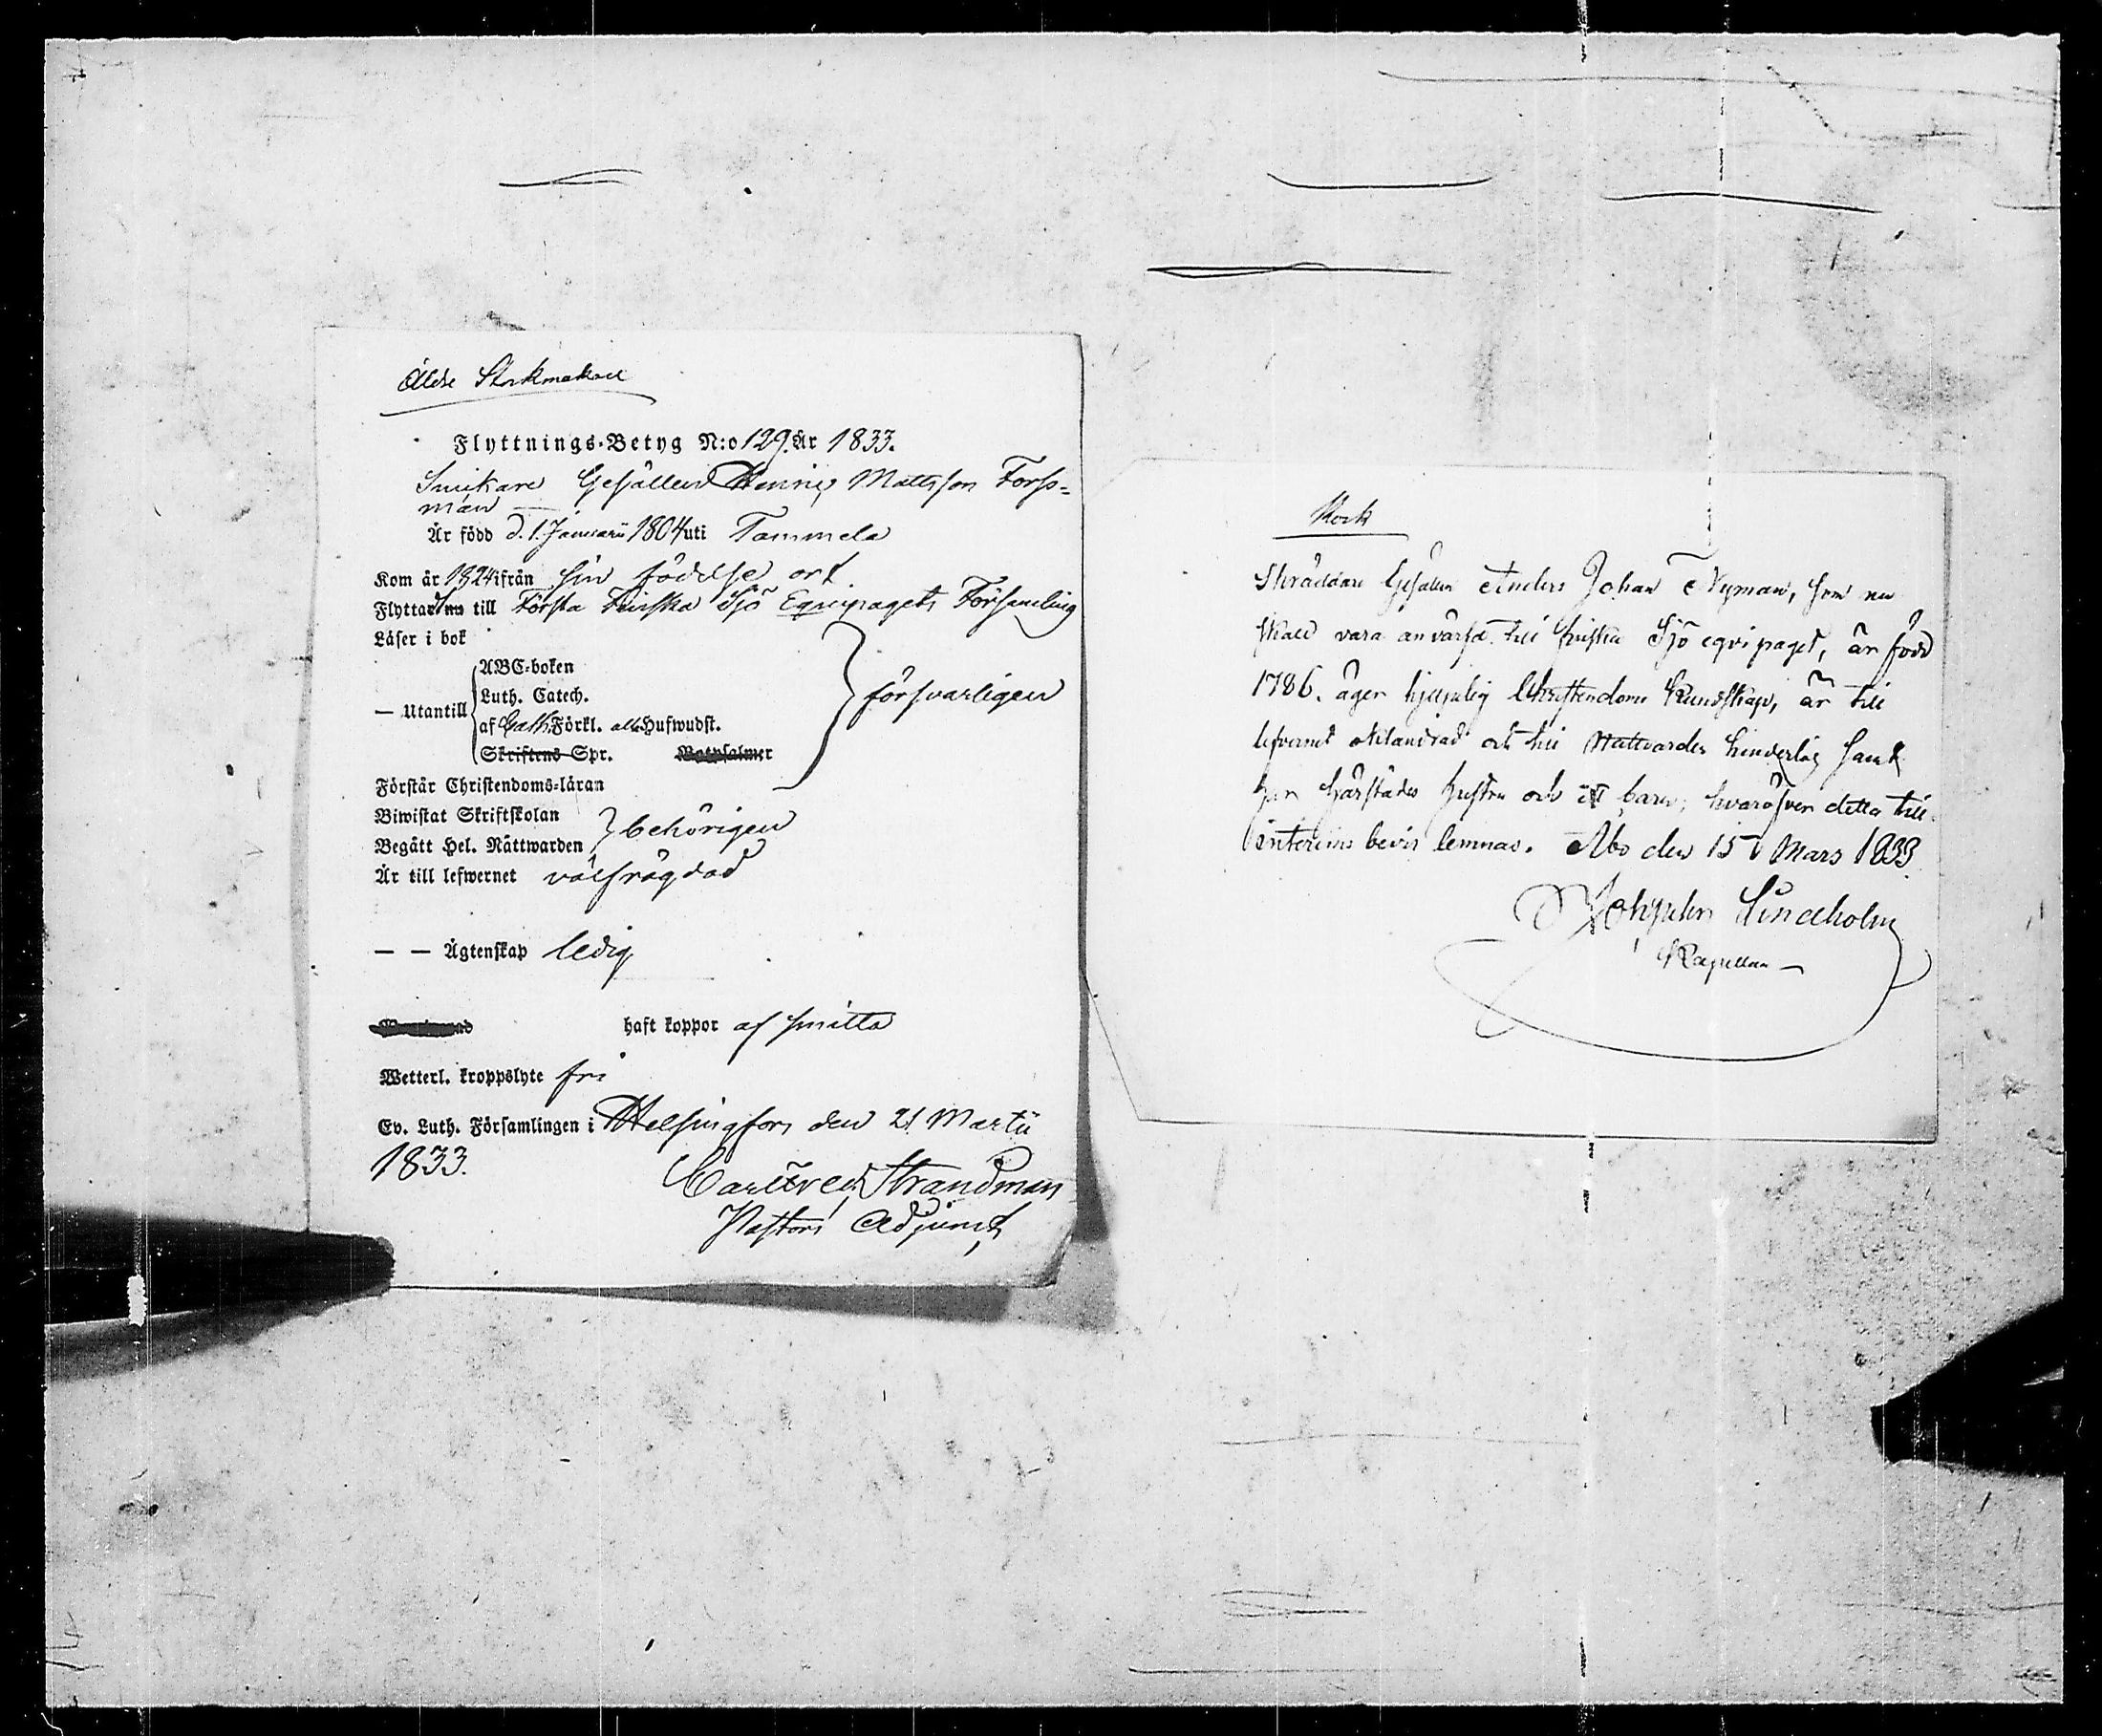 Äldre Stockmakare
Flyttnings-Betyg N:o 129. År 1833.
Snickare Gesällen Henric Mattsson Forss-
man
Är född d. 1. Januarii 1804 uti Tammela
Kom år 1824 ifrån sin födelse ort
Flyttar nu till Första Finska Sjö Equipagets Församling
Läser i bok
ABC-boken
— Utantill Luth. Catech. försvarligen
af Cath. Förkl. alla Hufwudst.
Skriftens Spr. Botpsalmer
Förstår Christendoms-läran
Biwistat Skriftskolan
Begått Hel. Nattwarden behörigen
Är till lefwernet välfrägdad
— — Ägtenskap ledig
haft koppor af smitta
Wetterl. kroppslyte fri
Ev. Luth. Församlingen i Helsingfors den 21 Martii
1833.
Carl Fred. Strandman
Pastors Adjunct
Kock
Skräddare Gesällen Anders Johan Nyman, som nu
skall vara anvärfd till finska Sjö eqvipaget, är född
1786. äger hjelplig Christendoms kundskap, är till
lefvernet oklandrad och till Nattvarden hinderlös samt
har härstädes hustru och ett barn; hvaröfver detta till
interims bevis lemnas. Åbo den 15 Mars 1833.
Lindholm
Kapellan